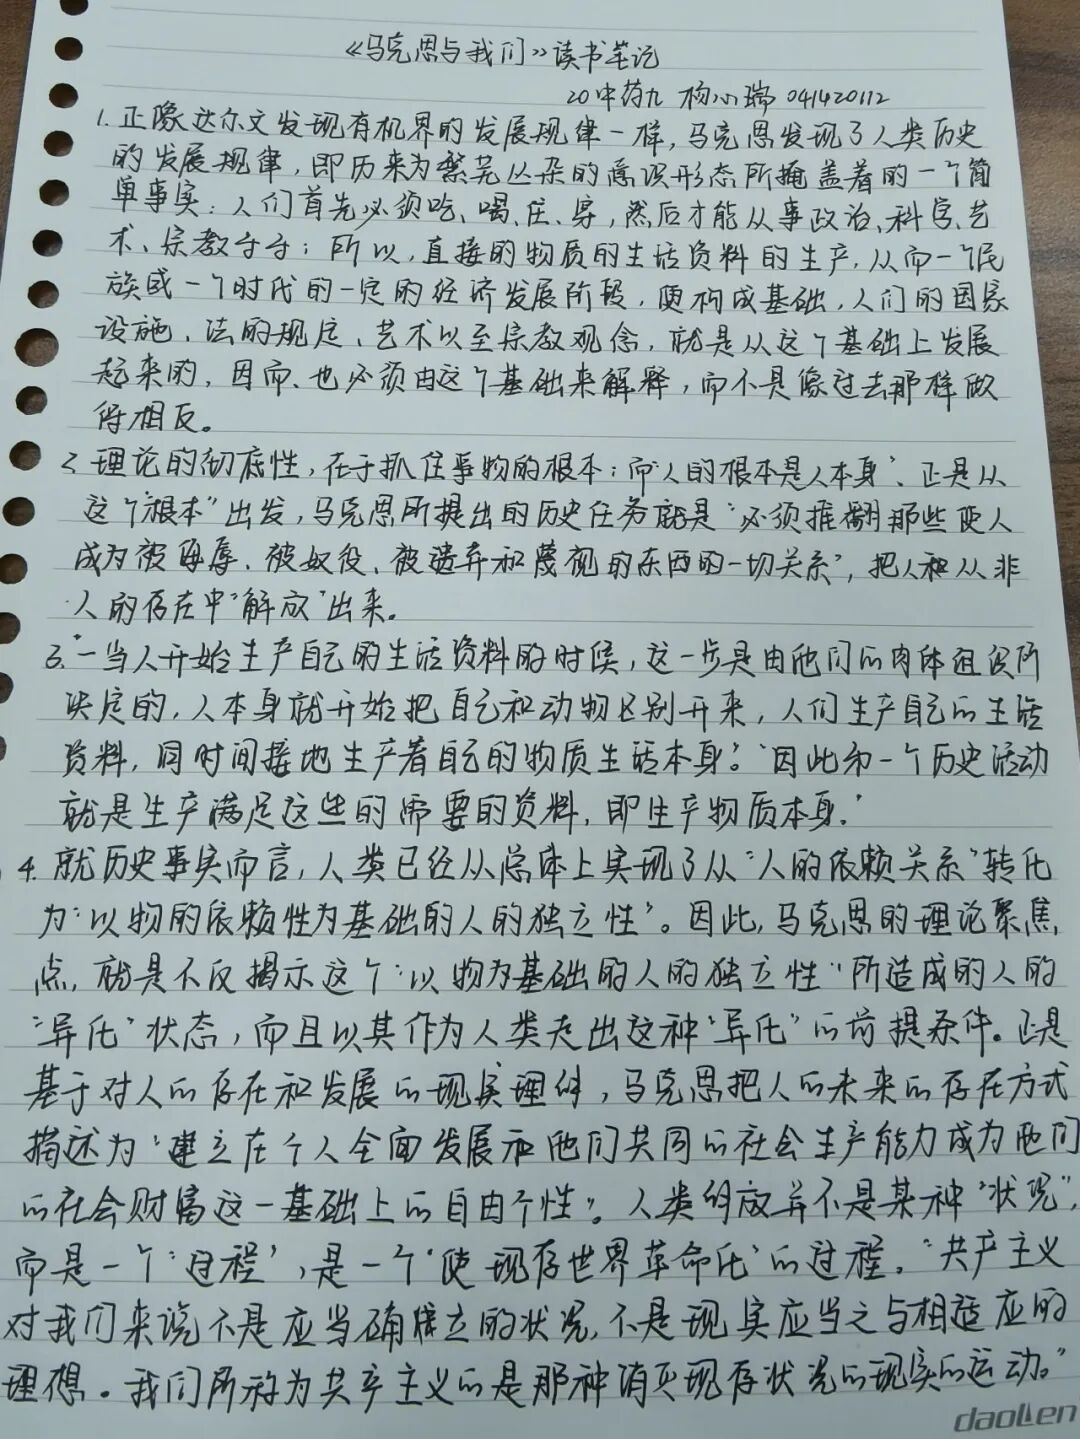 《马克思与我们》读书笔记
20中药九 杨心瑞 041420112
1. 正像达尔文发现有机界的发展规律一样, 马克思发现了人类历史
的发展规律, 即历来为繁芜丛杂的意识形态所掩盖着的一个简
单事实: 人们首先必须吃、喝、住、穿, 然后才能从事政治、科学、艺
术、宗教等等; 所以, 直接的物质的生活资料的生产, 从而一个民
族或一个时代的一定的经济发展阶段, 便构成基础, 人们的国家
设施、法的规定、艺术以至宗教观念, 就是从这个基础上发展
起来的, 因而, 也必须由这个基础来解释, 而不是像过去那样做
得相反。
2. 理论的彻底性, 在于抓住事物的根本; 而“人的根本是人本身”、正是从
这个“根本”出发, 马克思所提出的历史任务就是“必须推翻那些使人
成为被侮辱、被奴役、被遗弃和蔑视的东西的一切关系”, 把人和从非
人的存在中“解放”出来。
3. “一当人开始生产自己的生活资料的时候, 这一步是由他们的肉体组织所
决定的, 人本身就开始把自己和动物区别开来, 人们生产自己的生活
资料, 同时间接地生产着自己的物质生活本身。”“因此第一个历史活动
就是生产满足这些的需要的资料, 即生产物质本身.”
4. 就历史事实而言, 人类已经从总体上实现了从“人的依赖关系”转化
为“以物的依赖性为基础的人的独立性”。因此, 马克思的理论聚焦
点, 就是不仅揭示这个“以物为基础的人的独立性”所造成的人的
“异化”状态, 而且以其作为人类走出这种“异化”的前提条件。正是
基于对人的存在和发展的现实理解, 马克思把人的未来的存在方式
描述为“建立在个人全面发展和他们共同的社会生产能力成为他们
的社会财富这一基础上的自由个性”。人类解放并不是某种“状况”,
而是一个“过程”, 是一个“使现存世界革命化”的过程。“共产主义
对我们来说不是应当确立的状况, 不是现实应当之与相适应的
理想。我们所称为共产主义的是那种消灭现存状况的现实的运动。”
daolen